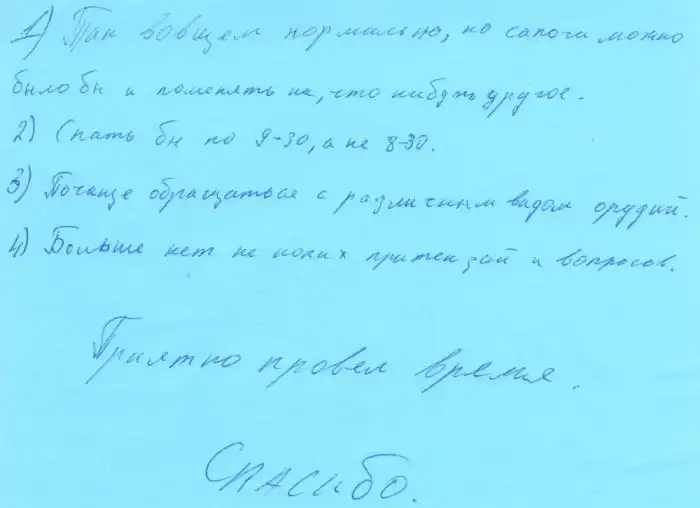 1) Так вовщем нормально, но сапоги можно
было бы и поменять на, что нибудь другое.
2) Спать бы по 9-30, а не 8-30.
3) Почаще обращаться с различным видом орудий.
4) Больше нет не каких притензий и вопросов.
Приятно провел время.
Спасибо.